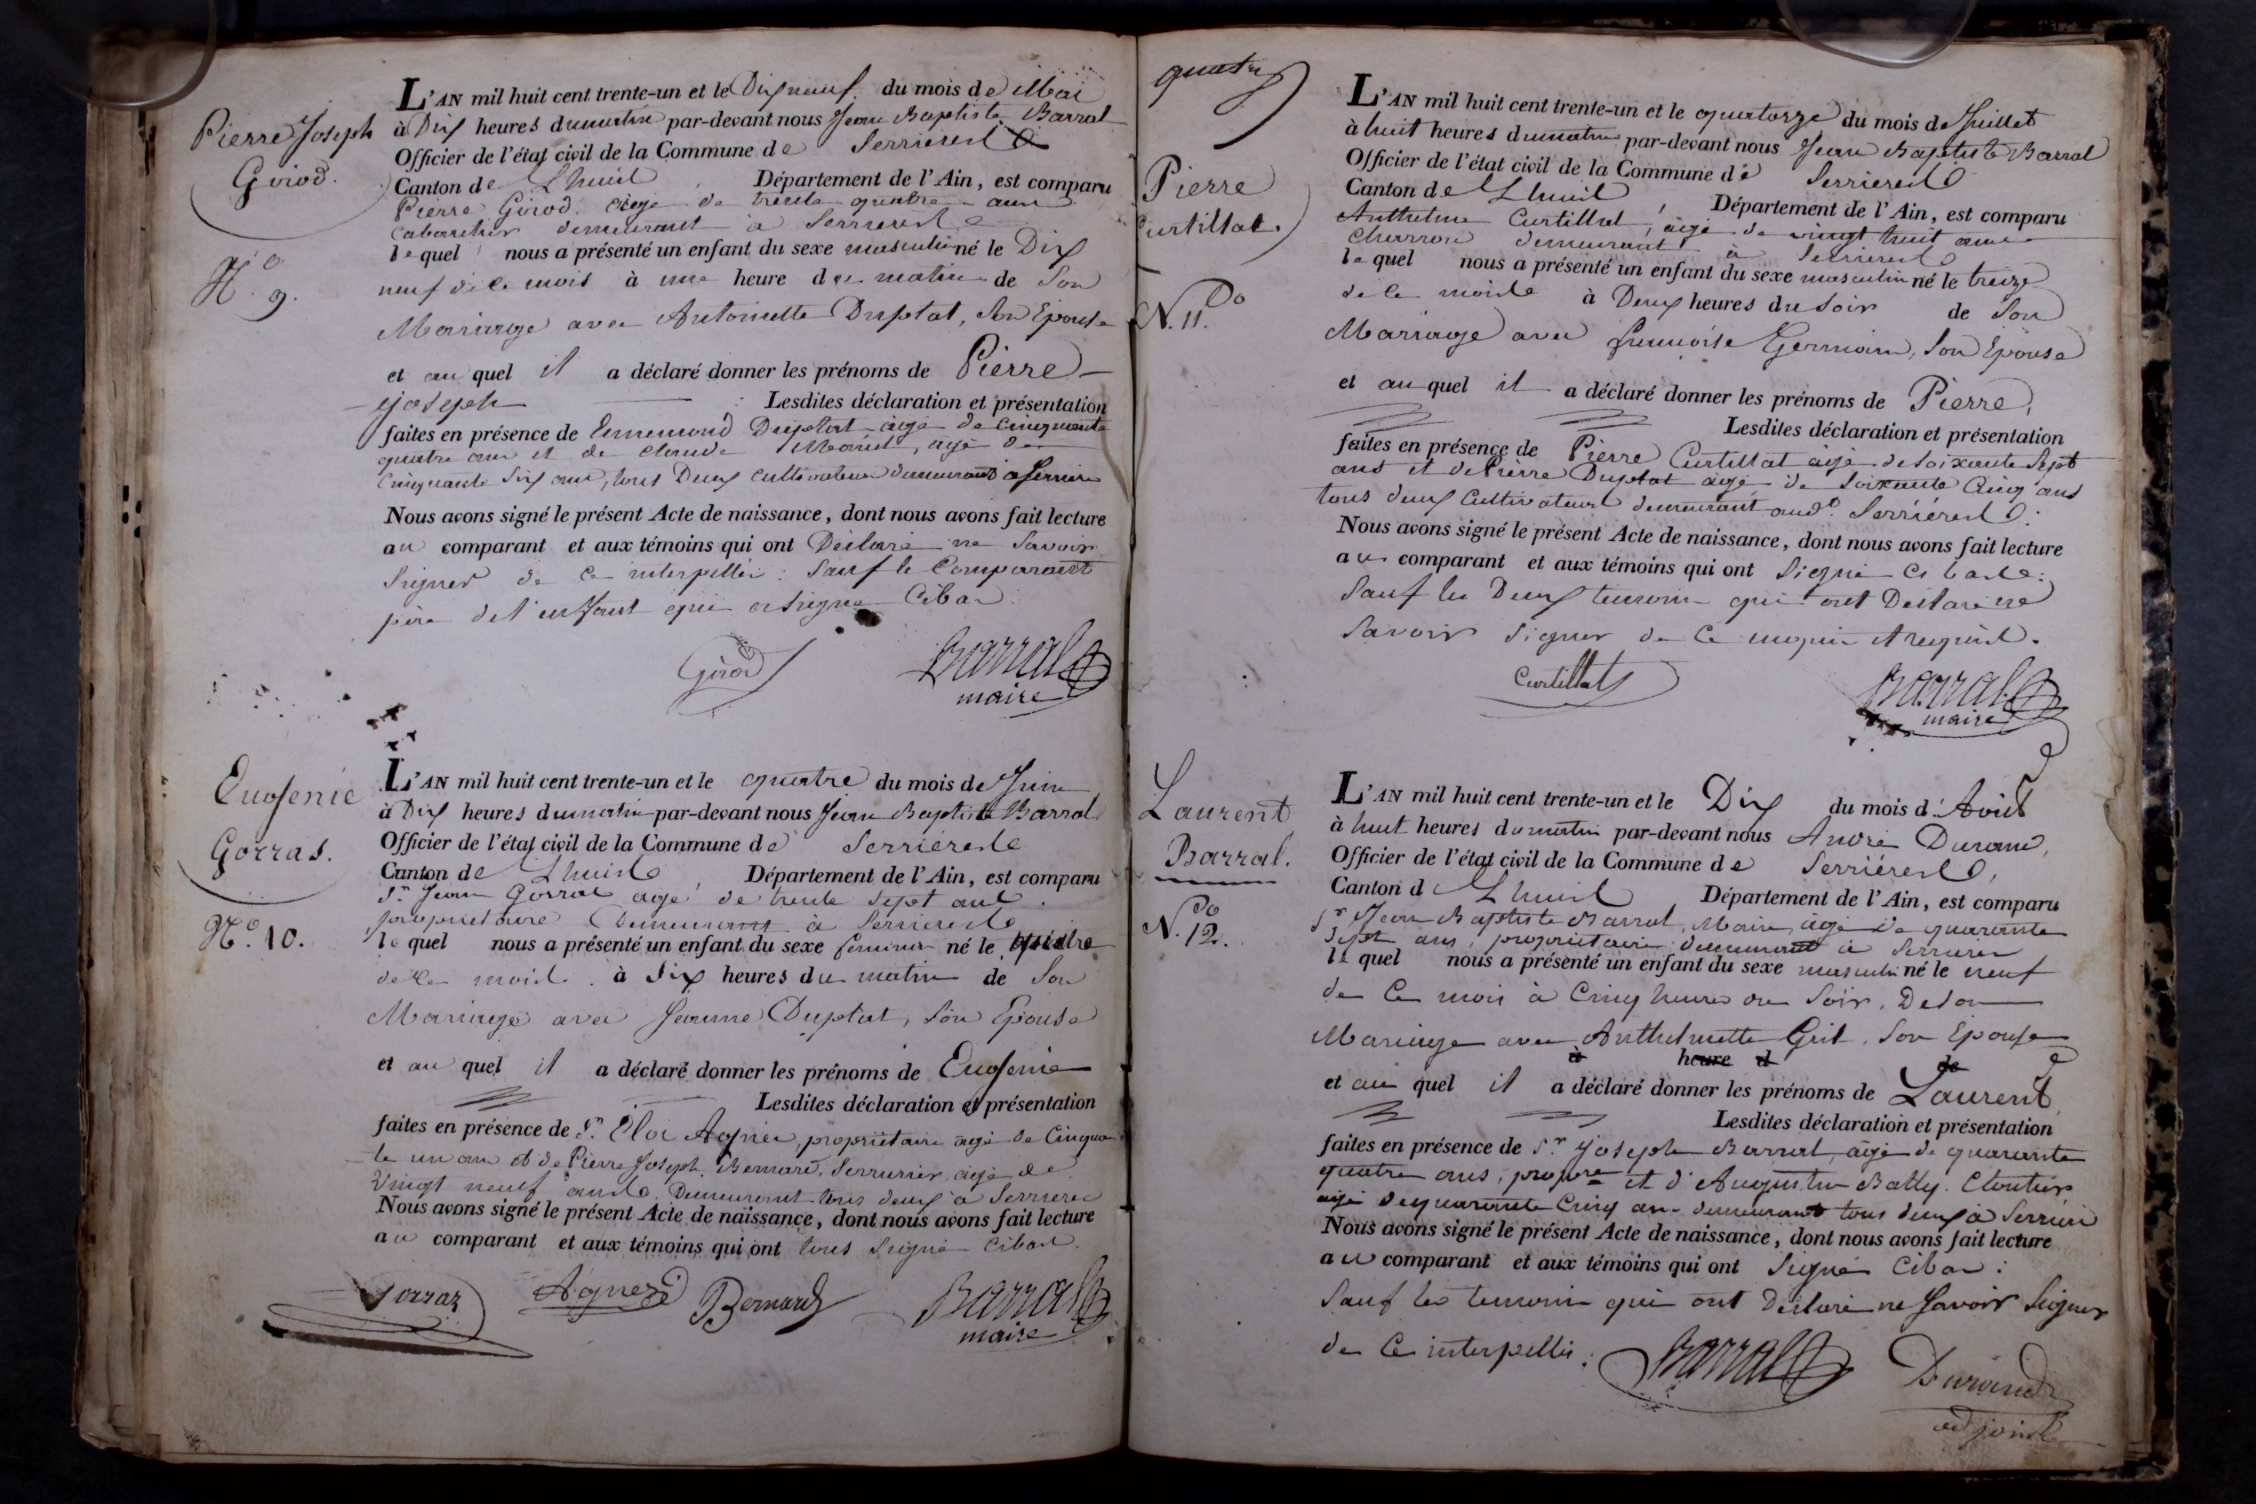 Pierre Joseph
Girod.
N.o 9.
L'AN mil huit cent trente-un et le Dix neuf du mois de Mai
à Dix heures du matin par-devant nous Jean Baptiste Barral
Officier de l'état civil de la Commune de Serrieres
Canton de Lhuis Département de l'Ain, est comparu
Pierre Girod agé de trente quatre ans
Cabaretier demeurant à Serrieres
lequel nous a présenté un enfant du sexe masculin né le Dix
neuf de ce mois à une heure du matin de Son
Mariage avec Antoinette Duplat, Son Epouse
et au quel il a déclaré donner les prénoms de Pierre
Joseph Lesdites déclaration et présentation
faites en présence de Ennemond Duplat agé de Cinquante
quatre ans et de Claude agé de
Cinquante Six ans, tous Deux Cultivateurs demeurant à Serriere
Nous avons signé le présent Acte de naissance, dont nous avons fait lecture
au comparant et aux témoins qui ont Déclaré ne Savoir
Signer de ce interpellés : Sauf le Comparant
père de l'enfant qui a signé Cibas
Girod Barral
maire
Eugenie
Gorras.
N.o 10.
L'AN mil huit cent trente-un et le quatre du mois de Juin
à Dix heures du matin par-devant nous Jean Baptiste Barral
Officier de l'état civil de la Commune de Serrieres
Canton de Lhuis Département de l'Ain, est comparu
S.r Jean Gorras agé de trente Sept ans
propriétaire Demeurant à Serrieres
lequel nous a présenté un enfant du sexe feminin né le quatre
de ce mois à Six heures du matin de Son
Mariage avec Jeanne Duplat, Son Epouse
et au quel il a déclaré donner les prénoms de Eugenie
Lesdites déclaration et présentation
faites en présence de S.r Eloi Agnier, propriétaire agé de Cinquan
te un ans et de Pierre Joseph Bernard, Serrurier agé de
Vingt neuf ans Demeurant tous deux à Serrieres
Nous avons signé le présent Acte de naissance, dont nous avons fait lecture
au comparant et aux témoins qui ont tous Signé Cibas.
Gorras Agnez Bernard Barral
maire
quatre
Pierre
Curtillat.
N.o 11.
L'AN mil huit cent trente-un et le quatorze du mois de Juillet
à huit heures du matin par-devant nous Jean Baptiste Barral
Officier de l'état civil de la Commune de Serrieres
Canton de Lhuis Département de l'Ain, est comparu
Anthelme Curtillat, agé de vingt huit ans
Charron demeurant à Serrieres
lequel nous a présenté un enfant du sexe masculin né le treize
de ce mois à Deux heures du Soir de Son
Mariage avec Germain, Son Epouse
et au quel il a déclaré donner les prénoms de Pierre,
Lesdites déclaration et présentation
faites en présence de Pierre Curtillat agé de soixante Sept
ans et de Pierre Duplat agé de Soixante Cinq ans
tous deux Cultivateurs demeurant aud.t Serrieres.
Nous avons signé le présent Acte de naissance, dont nous avons fait lecture
au comparant et aux témoins qui ont Signé Ci bas :
Sauf les Deux temoins qui ont Déclaré ne
Savoir Signer de Ce enquis et requis.
Curtillat Barral
maire
Laurent
Barral.
N.o 12.
L'AN mil huit cent trente-un et le Dix du mois d'Août
à huit heures du matin par-devant nous André Durand,
Officier de l'état civil de la Commune de Serrieres,
Canton de Lhuis Département de l'Ain, est comparu
S.r Jean Baptiste Barral, Maire, agé de quarante
Sept ans, propriétaire demeurant à Serrieres
lequel nous a présenté un enfant du sexe masculin né le neuf
de Ce mois à Cinq heures du Soir, De Son
Mariage avec Anthelmette Son Epouse
à heure d de
et au quel il a déclaré donner les prénoms de Laurent
Lesdites déclaration et présentation
faites en présence de S.r Joseph Barral, agé de quarante
quatre ans, propre et d'Augustin Batty, Cloutier
agé de quarante Cinq ans demeurant tous deux à Serriere
Nous avons signé le présent Acte de naissance, dont nous avons fait lecture
au comparant et aux témoins qui ont Signé Cibas :
Sauf les temoins qui ont Déclaré ne Savoir Signer
de Ce interpellés. Barral Durand
adjoint